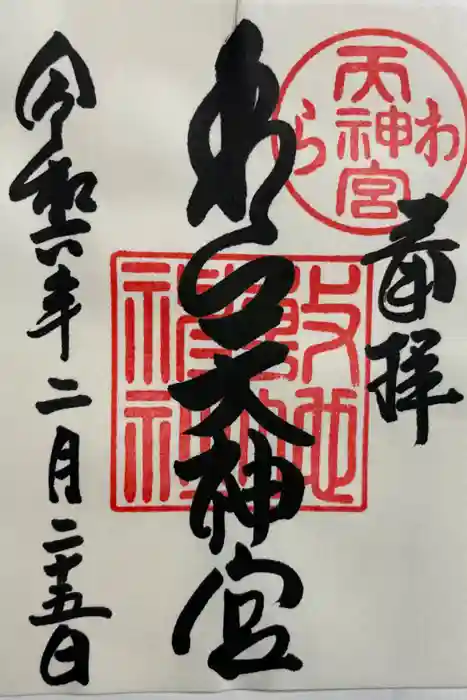 奉拝
わら
天神宮
敷地
神社
わら天神宮
令和六年二月二十五日